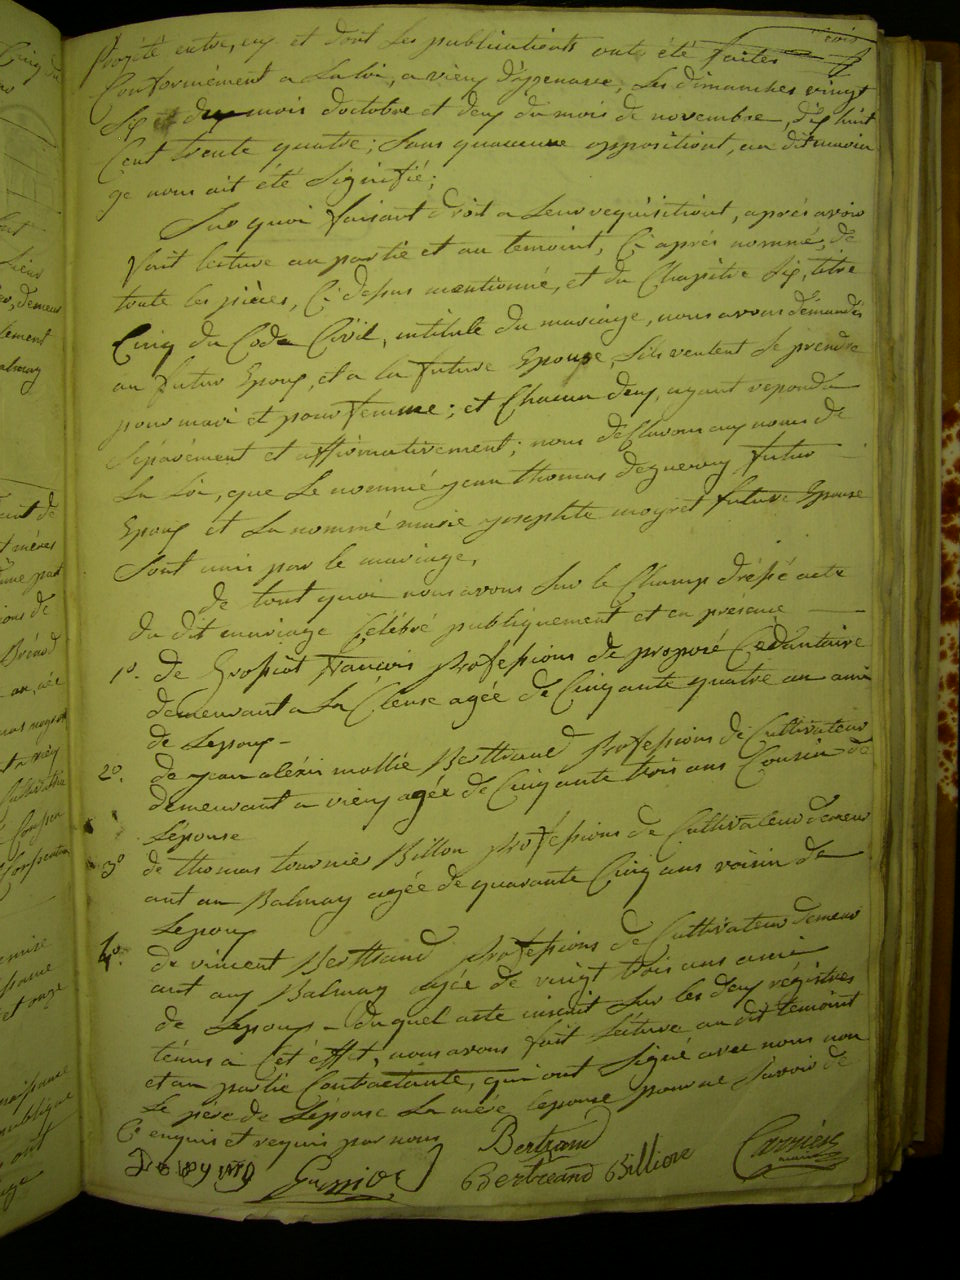 Projété entre, eux et dont les publications onts été faites
Conformément a La Loi, a vieux d'izenave, Les dimanches vingt
Six du mois doctobre et deux du mois de novembre, dix huit
Cent trente quatre; Sans quaucune oppositiont, au dit mariage
ge nous ait été Signifié;
Sur quoi faisant droit a Leur requisitiont, aprés avoir
fait lecture au partie et au temoint, Ci aprés nommé, de
toute les pièces, Ci dessus mentionné, et du Chapitre Six, titre
Cinq du Code Civil, intitule du mariage, nous avons démandés
au futur Epoux, et a la future Epouse, Sils veulent Se prendre
pour mari et pour femme; et Chacun deux, ayant repondu
Séparément et affirmativement; nous déclarons aux noms de
La Loi, que Le nommé jean thomas deguerry futur
Epoux et La nommé marie josephte moyret future Epouse
Sont unis par le mariage,
de tout quoi nous avons Sur le Champ dréssé acte
du dit mariage Célébré publiquement et en presence
1o. de Grossiot francois proféssions de proposé Cedantaire
demeurant a La Cleuse agée de Cinquante quatre an ami
de Lepoux-
2o. de jean aléxis mollié Berttrand Proféssions de Cultivateur
demeurant a vieux agée de Cinquante trois ans Cousin de
Lépouse
3o de thomas tournier Billon proféssions de Cultivateur demeur
ant au Balmay agée de quarante Cinq ans voisin de
Lepoux
4o. de vincent Berttrand proféssions de Cultivateur demeur
ant aux Balmay agée de vingt trois ans ami
de Lepoux - duquel acte inscrit Sur les deux régistres
ténus a Cét éffet, nous avons fait Lécture au dit temoint
et au partie Contractante, qui ont Signé avec nous non
Le père de Lépouse La mère Lepouse pour ne Savoir de
Ce enquis et requis par nous
Bertrand
Bertreand Billion
Carrier